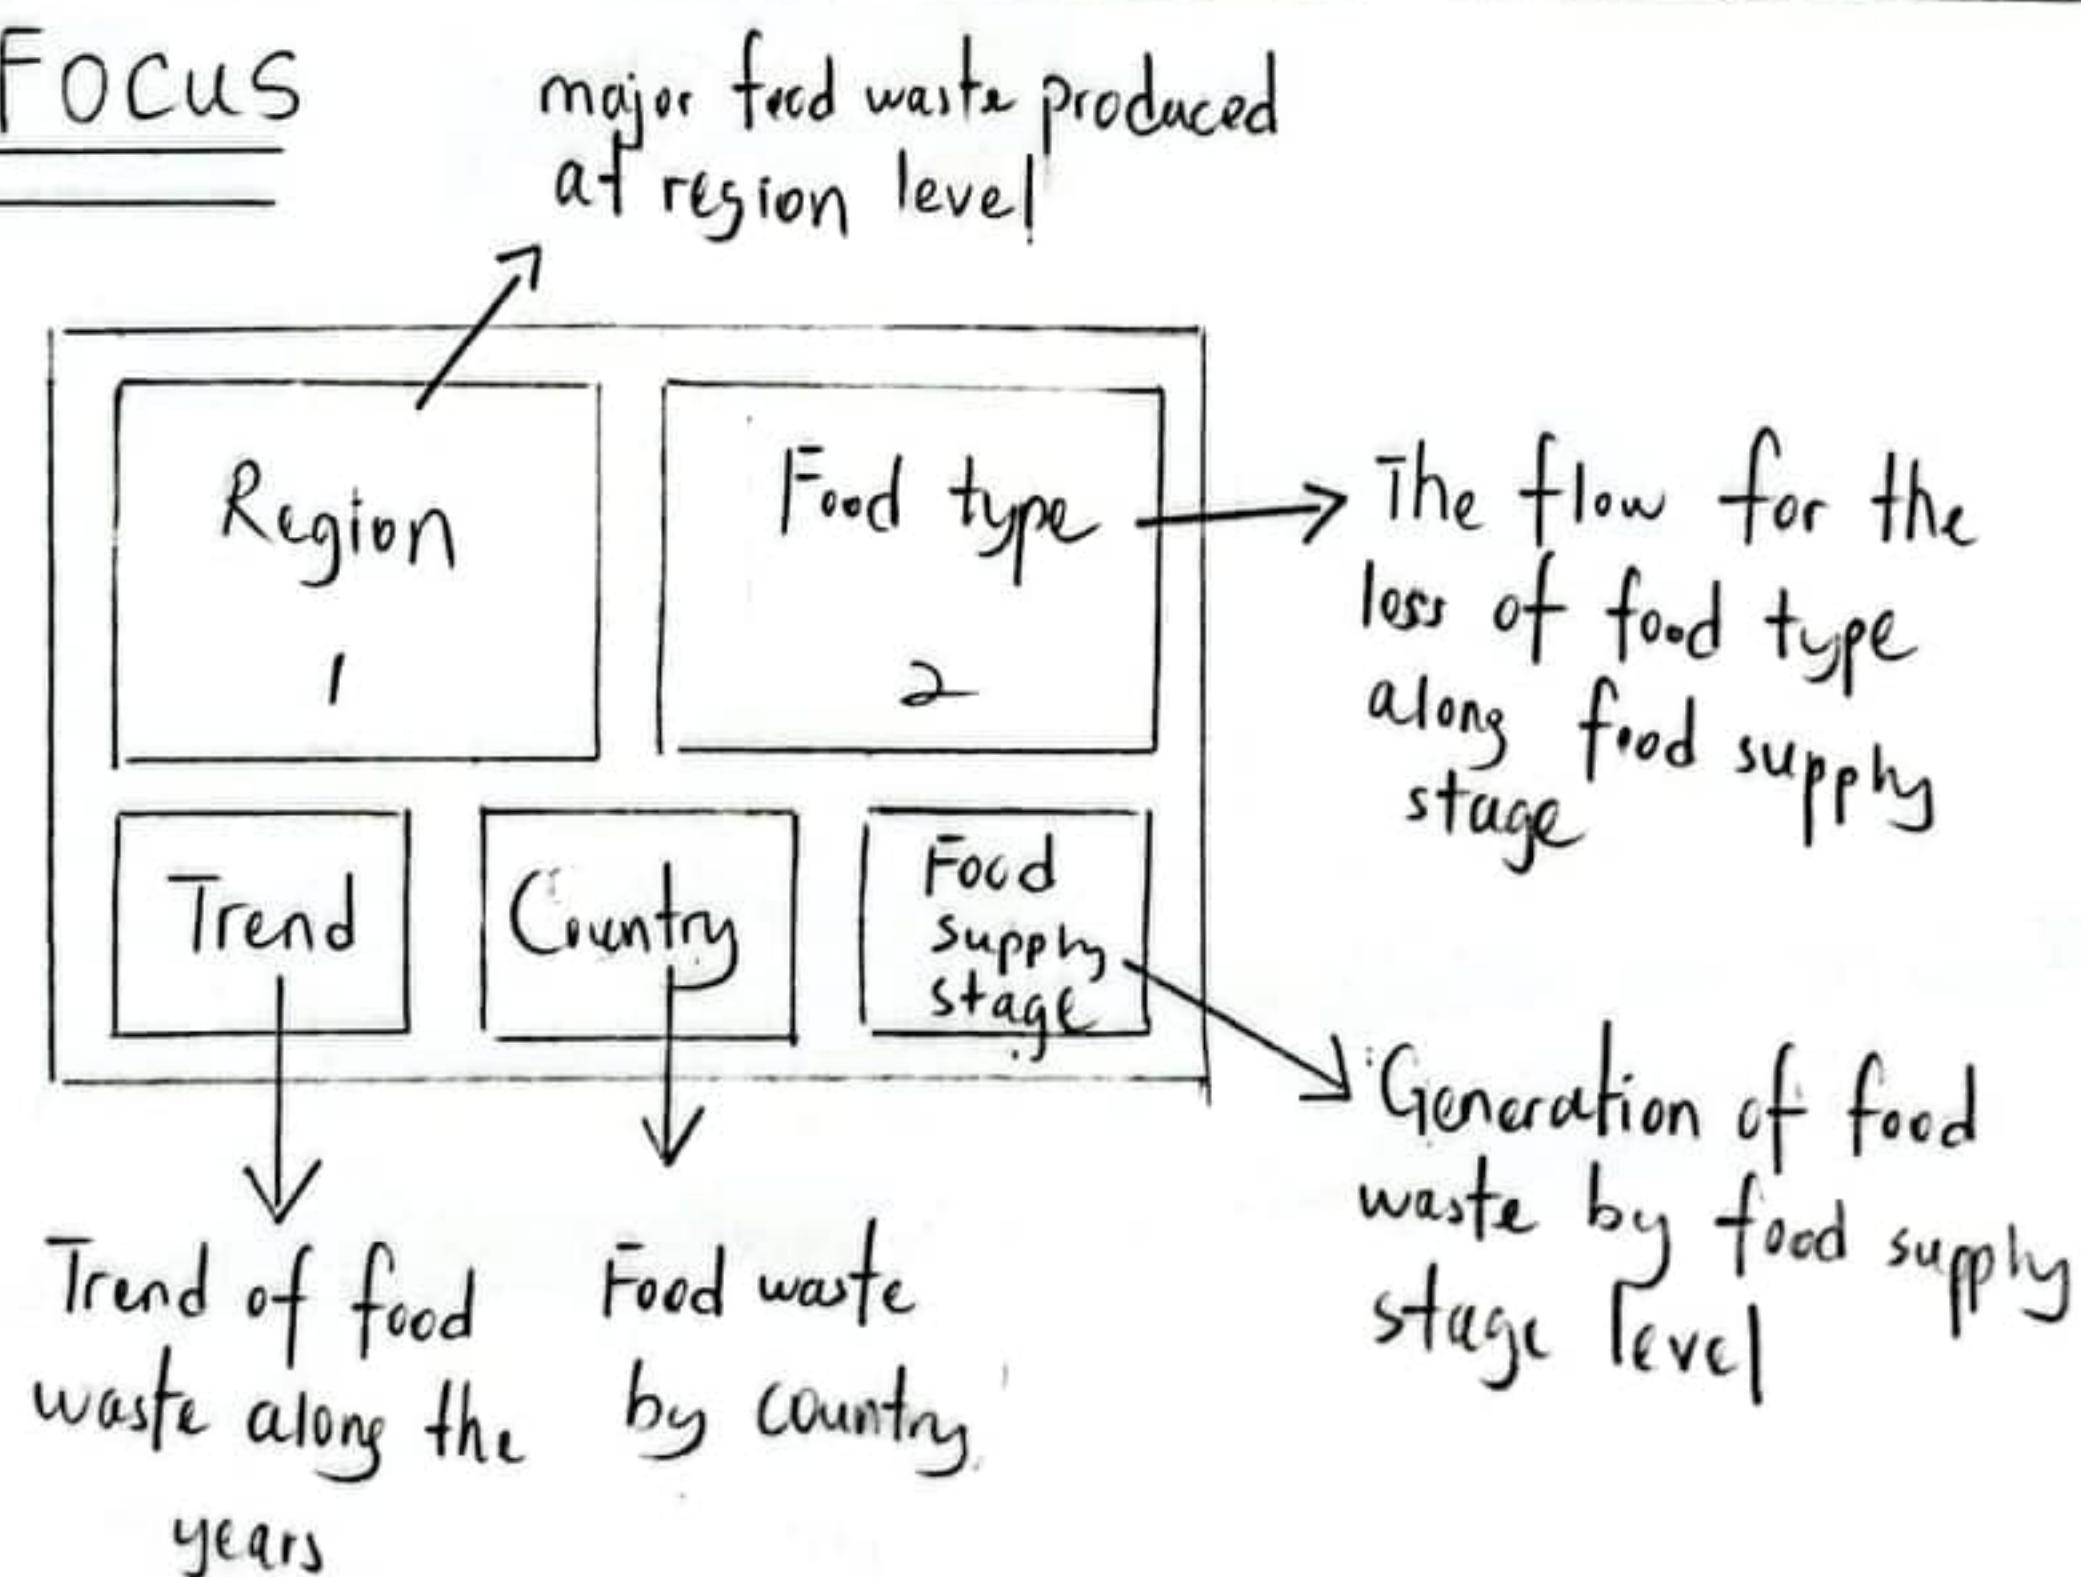 FOCUS
major food waste produced
at region level
Region
1
Food type
2
The flow for the
loss of food type
along food supply
stage
Trend
Country
Food
supply
stage
Generation of food
waste by food supply
stage level
Trend of food
waste along the
years
Food waste
by country